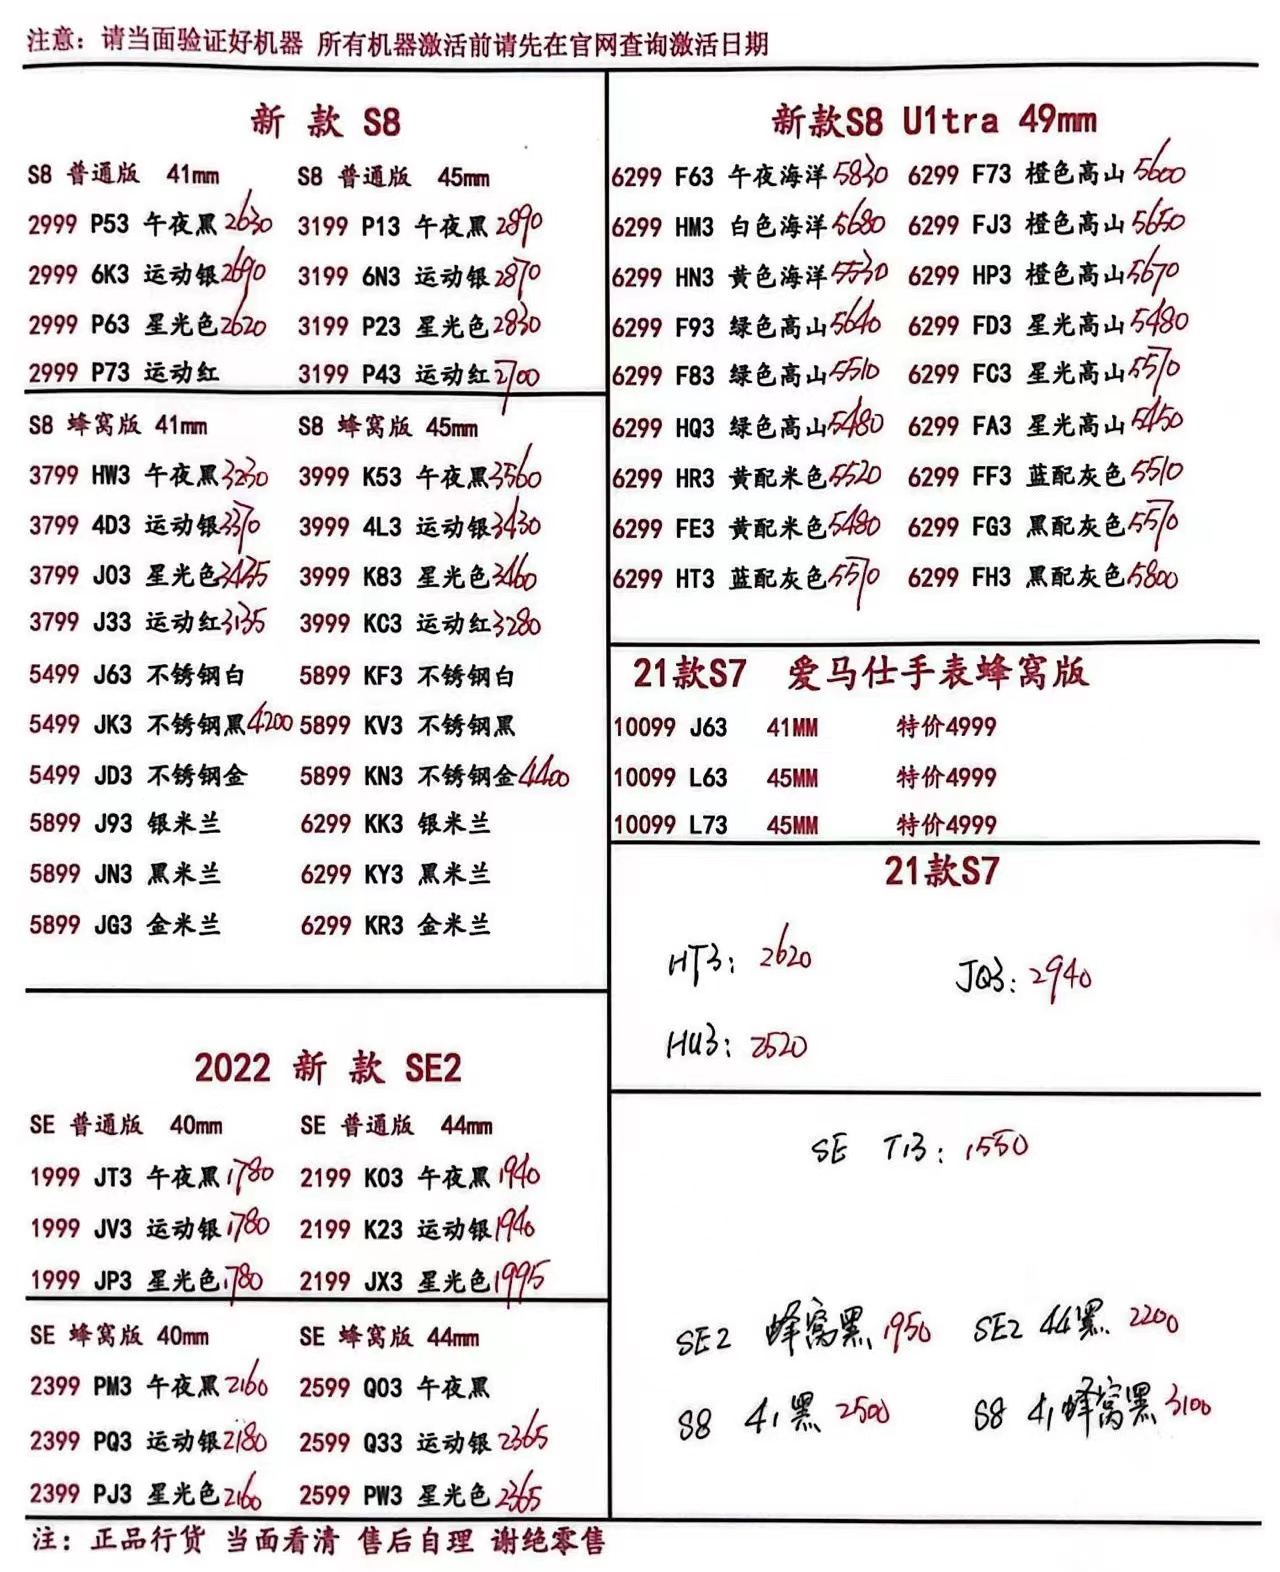 注意：请当面验证好机器 所有机器激活前请先在官网查询激活日期
新 款 S8
S8 普通版 41mm S8 普通版 45mm
2999 P53 午夜黑 2630 3199 P13 午夜黑 2890
2999 6K3 运动银 2690 3199 6N3 运动银 2870
2999 P63 星光色 2620 3199 P23 星光色 2830
2999 P73 运动红 3199 P43 运动红 2700
S8 蜂窝版 41mm S8 蜂窝版 45mm
3799 HW3 午夜黑 3230 3999 K53 午夜黑 3560
3799 4D3 运动银 3370 3999 4L3 运动银 3430
3799 J03 星光色 3435 3999 K83 星光色 3460
3799 J33 运动红 3135 3999 KC3 运动红 3280
5499 J63 不锈钢白 5899 KF3 不锈钢白
5499 JK3 不锈钢黑 4200 5899 KV3 不锈钢黑
5499 JD3 不锈钢金 5899 KN3 不锈钢金 4400
5899 J93 银米兰 6299 KK3 银米兰
5899 JN3 黑米兰 6299 KY3 黑米兰
5899 JG3 金米兰 6299 KR3 金米兰
2022 新 款 SE2
SE 普通版 40mm SE 普通版 44mm
1999 JT3 午夜黑 1780 2199 K03 午夜黑 1940
1999 JV3 运动银 1780 2199 K23 运动银 1940
1999 JP3 星光色 1780 2199 JX3 星光色 1995
SE 蜂窝版 40mm SE 蜂窝版 44mm
2399 PM3 午夜黑 2160 2599 Q03 午夜黑
2399 PQ3 运动银 2180 2599 Q33 运动银 2365
2399 PJ3 星光色 2160 2599 PW3 星光色 2365
新款S8 U1tra 49mm
6299 F63 午夜海洋 5830 6299 F73 橙色高山 5600
6299 HM3 白色海洋 5680 6299 FJ3 橙色高山 5650
6299 HN3 黄色海洋 5530 6299 HP3 橙色高山 5670
6299 F93 绿色高山 5640 6299 FD3 星光高山 5480
6299 F83 绿色高山 5510 6299 FC3 星光高山 5570
6299 HQ3 绿色高山 5480 6299 FA3 星光高山 5450
6299 HR3 黄配米色 5520 6299 FF3 蓝配灰色 5510
6299 FE3 黄配米色 5480 6299 FG3 黑配灰色 5570
6299 HT3 蓝配灰色 5570 6299 FH3 黑配灰色 5800
21款S7 爱马仕手表蜂窝版
10099 J63 41MM 特价4999
10099 L63 45MM 特价4999
10099 L73 45MM 特价4999
21款S7
HT3： 2620 JQ3： 2940
HU3： 2520
SE T13： 1550
SE2 蜂窝黑 1950 SE2 44黑 2200
S8 41黑 2500 S8 41蜂窝黑 3100
注：正品行货 当面看清 售后自理 谢绝零售